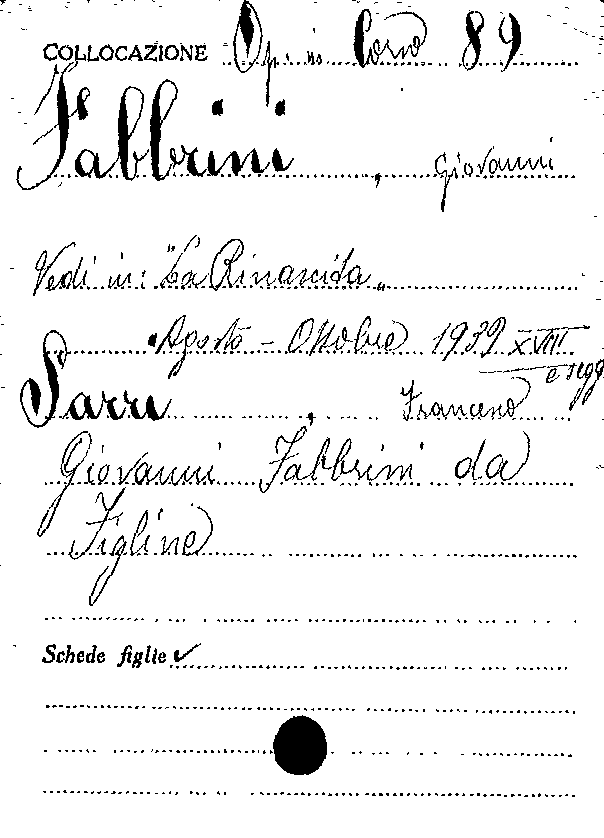 COLLOCAZIONE Op. in Corso 89
Fabbrini, Giovanni
Vedi in: "La Rinascita„
Agosto - Ottobre 1939 XVIII
e segg
Sarri, Francesco
Giovanni Fabbrini da
Figline
Schede figlie ✓